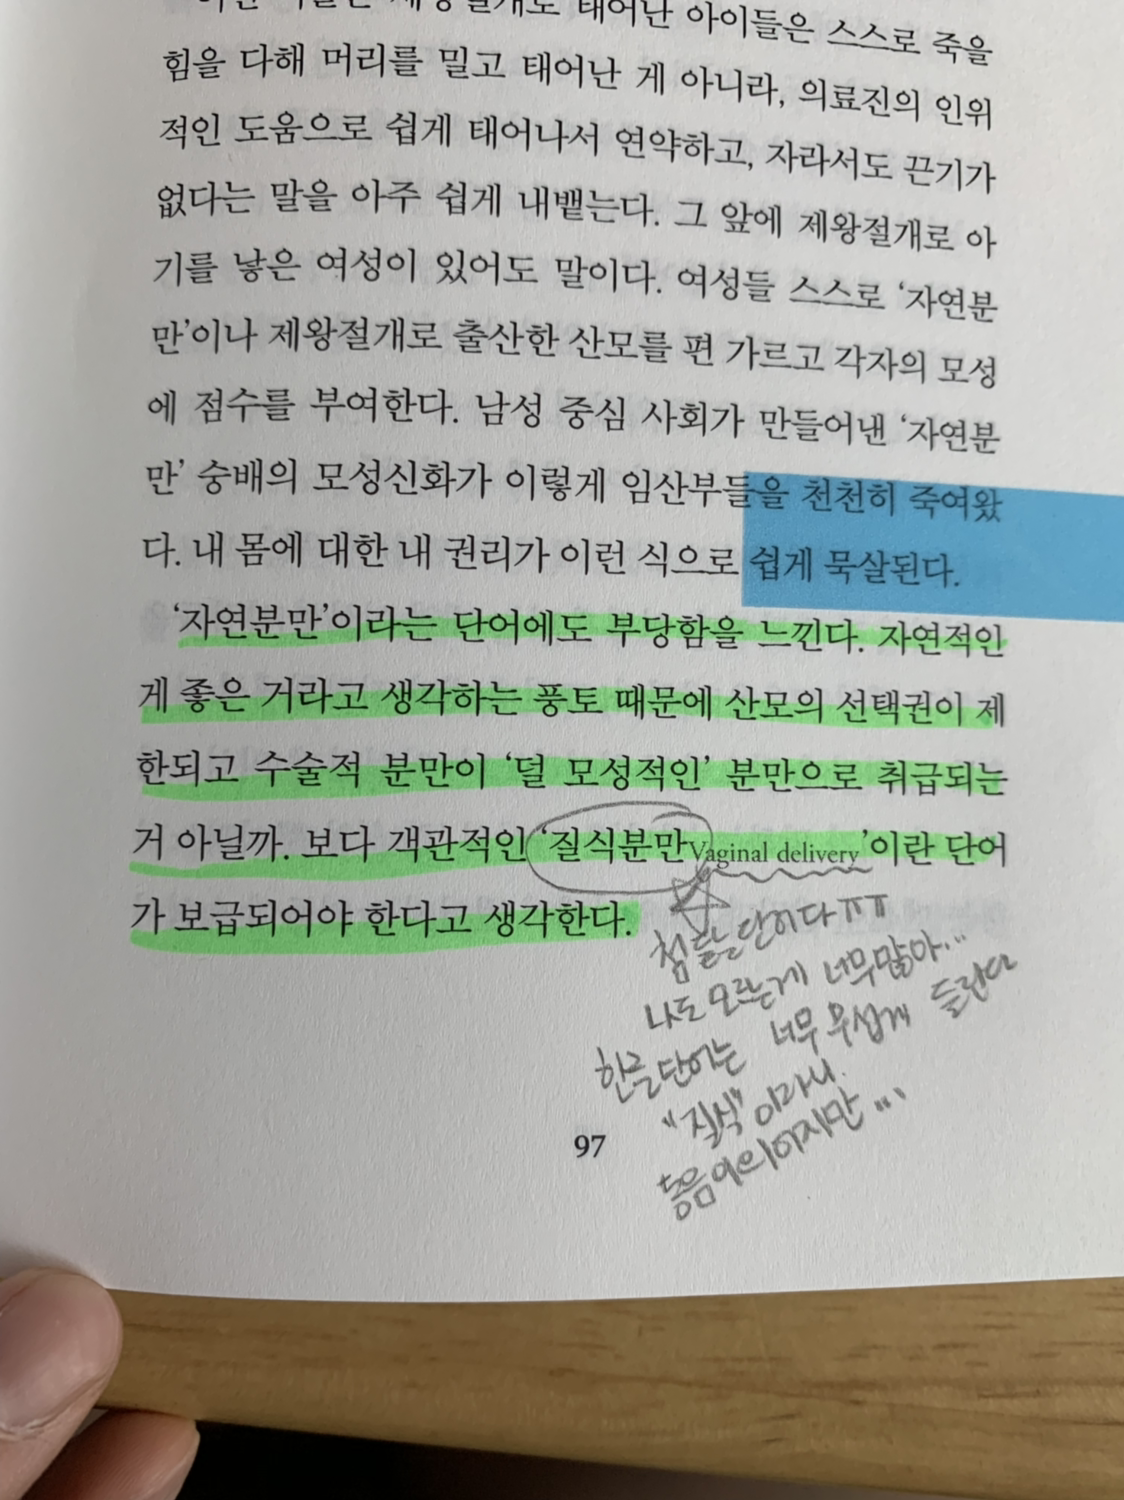 제왕절개로 태어난 아이들은 스스로 죽을
힘을 다해 머리를 밀고 태어난 게 아니라, 의료진의 인위
적인 도움으로 쉽게 태어나서 연약하고, 자라서도 끈기가
없다는 말을 아주 쉽게 내뱉는다. 그 앞에 제왕절개로 아
기를 낳은 여성이 있어도 말이다. 여성들 스스로 ‘자연분
만’이나 제왕절개로 출산한 산모를 편 가르고 각자의 모성
에 점수를 부여한다. 남성 중심 사회가 만들어낸 ‘자연분
만’ 숭배의 모성신화가 이렇게 임산부들을 천천히 죽여왔
다. 내 몸에 대한 내 권리가 이런 식으로 쉽게 묵살된다.
‘자연분만’이라는 단어에도 부당함을 느낀다. 자연적인
게 좋은 거라고 생각하는 풍토 때문에 산모의 선택권이 제
한되고 수술적 분만이 ‘덜 모성적인’ 분만으로 취급되는
거 아닐까. 보다 객관적인 ‘질식분만Vaginal delivery’이란 단어
가 보급되어야 한다고 생각한다.
첨 듣는 단어다 ㅠㅠ
나도 모르는게 너무많아...
한글단어는 너무 무섭게 들린다
"질식"이라니.
동음이의이지만...
97